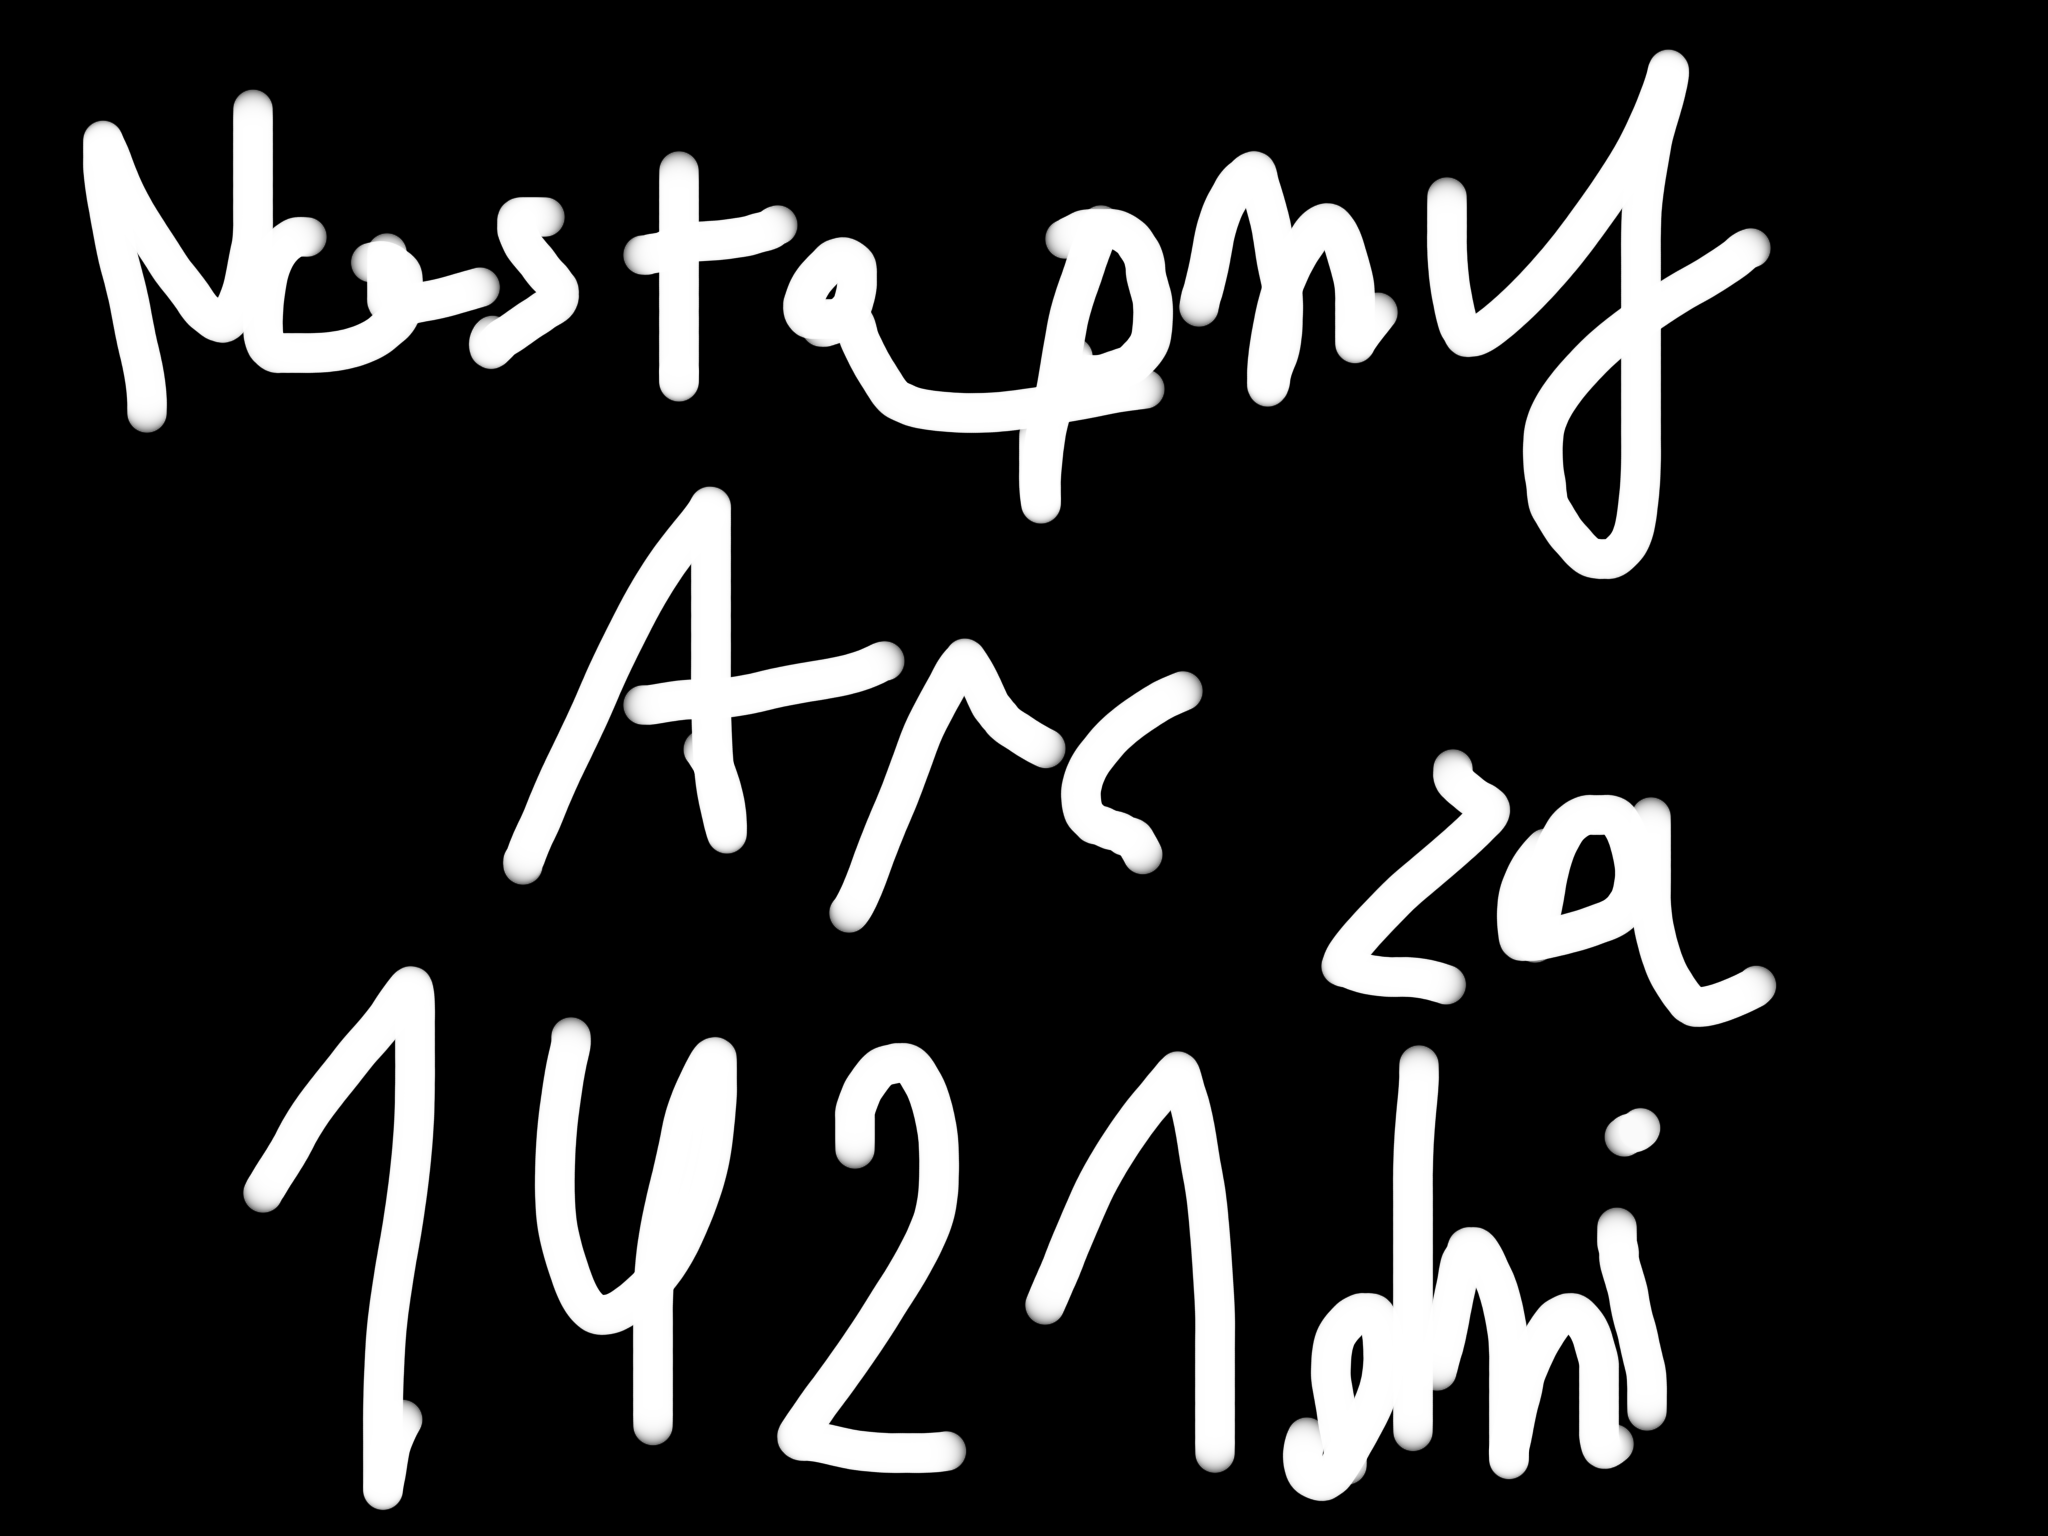 Nastapny
Arc
za
1421 dni